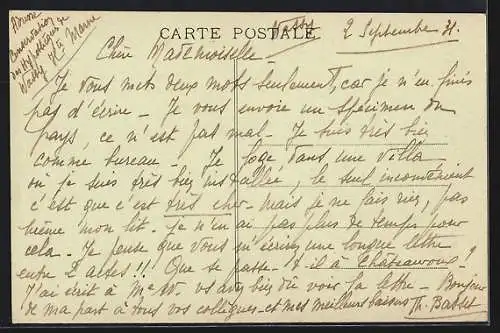 Adresse
Conservation
des Hypothèques de
Wassy Hte Marne
CARTE POSTALE
Wassy 2 Septembre 31.
Chère Mademoiselle -
Je vous mets deux mots seulement, car je n'en finis
pas d'écrire - Je vous envoie un spécimen du
pays, ce n'est pas mal - Je suis très bien
comme bureau - Je loge dans une villa,
où je suis très bien installée, le seul inconvénient
c'est que c'est très cher - mais je ne fais rien, pas
même mon lit - je n'en ai pas plus de temps pour
cela - Je pense que vous m'écrirez une longue lettre
entre 2 actes!! Que se passe-t-il à Châteauroux?
J'ai écrit à Me W. vous la lettre - Bonjour
de ma part à tous vos collègues - et mes meilleurs baisers Th. Basset